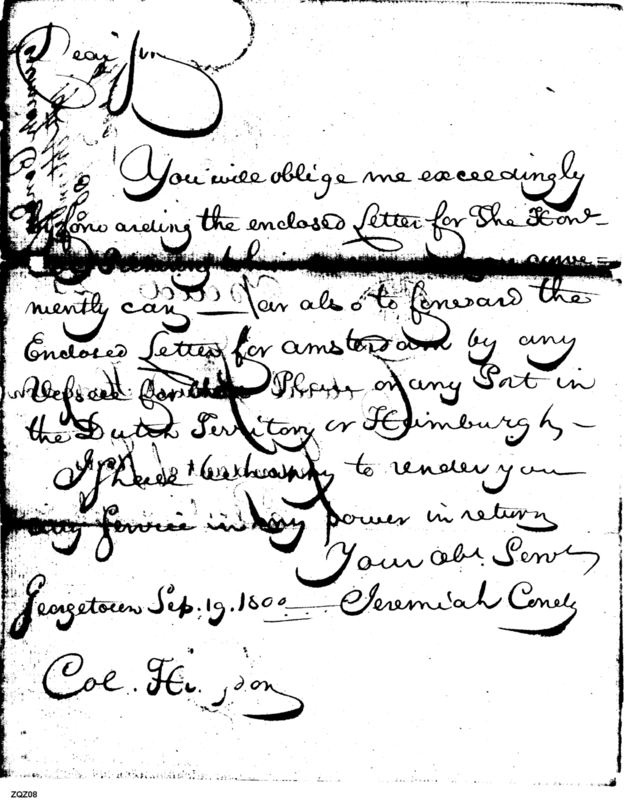 Dear Sir
You will oblige me exceedingly
by forwarding the enclosed Letter for The Honr
conve=
niently can — also to forward the
Enclosed Letter for amsterdam by any
Vessel for that Place or any Port in
the Dutch Territory or Hamburgh —
I shall be happy to render you
any Service in my power in return
Your obt. Servt
Georgetown Sep. 19. 1800 — Jeremiah Condy
Col.
ZQZ08